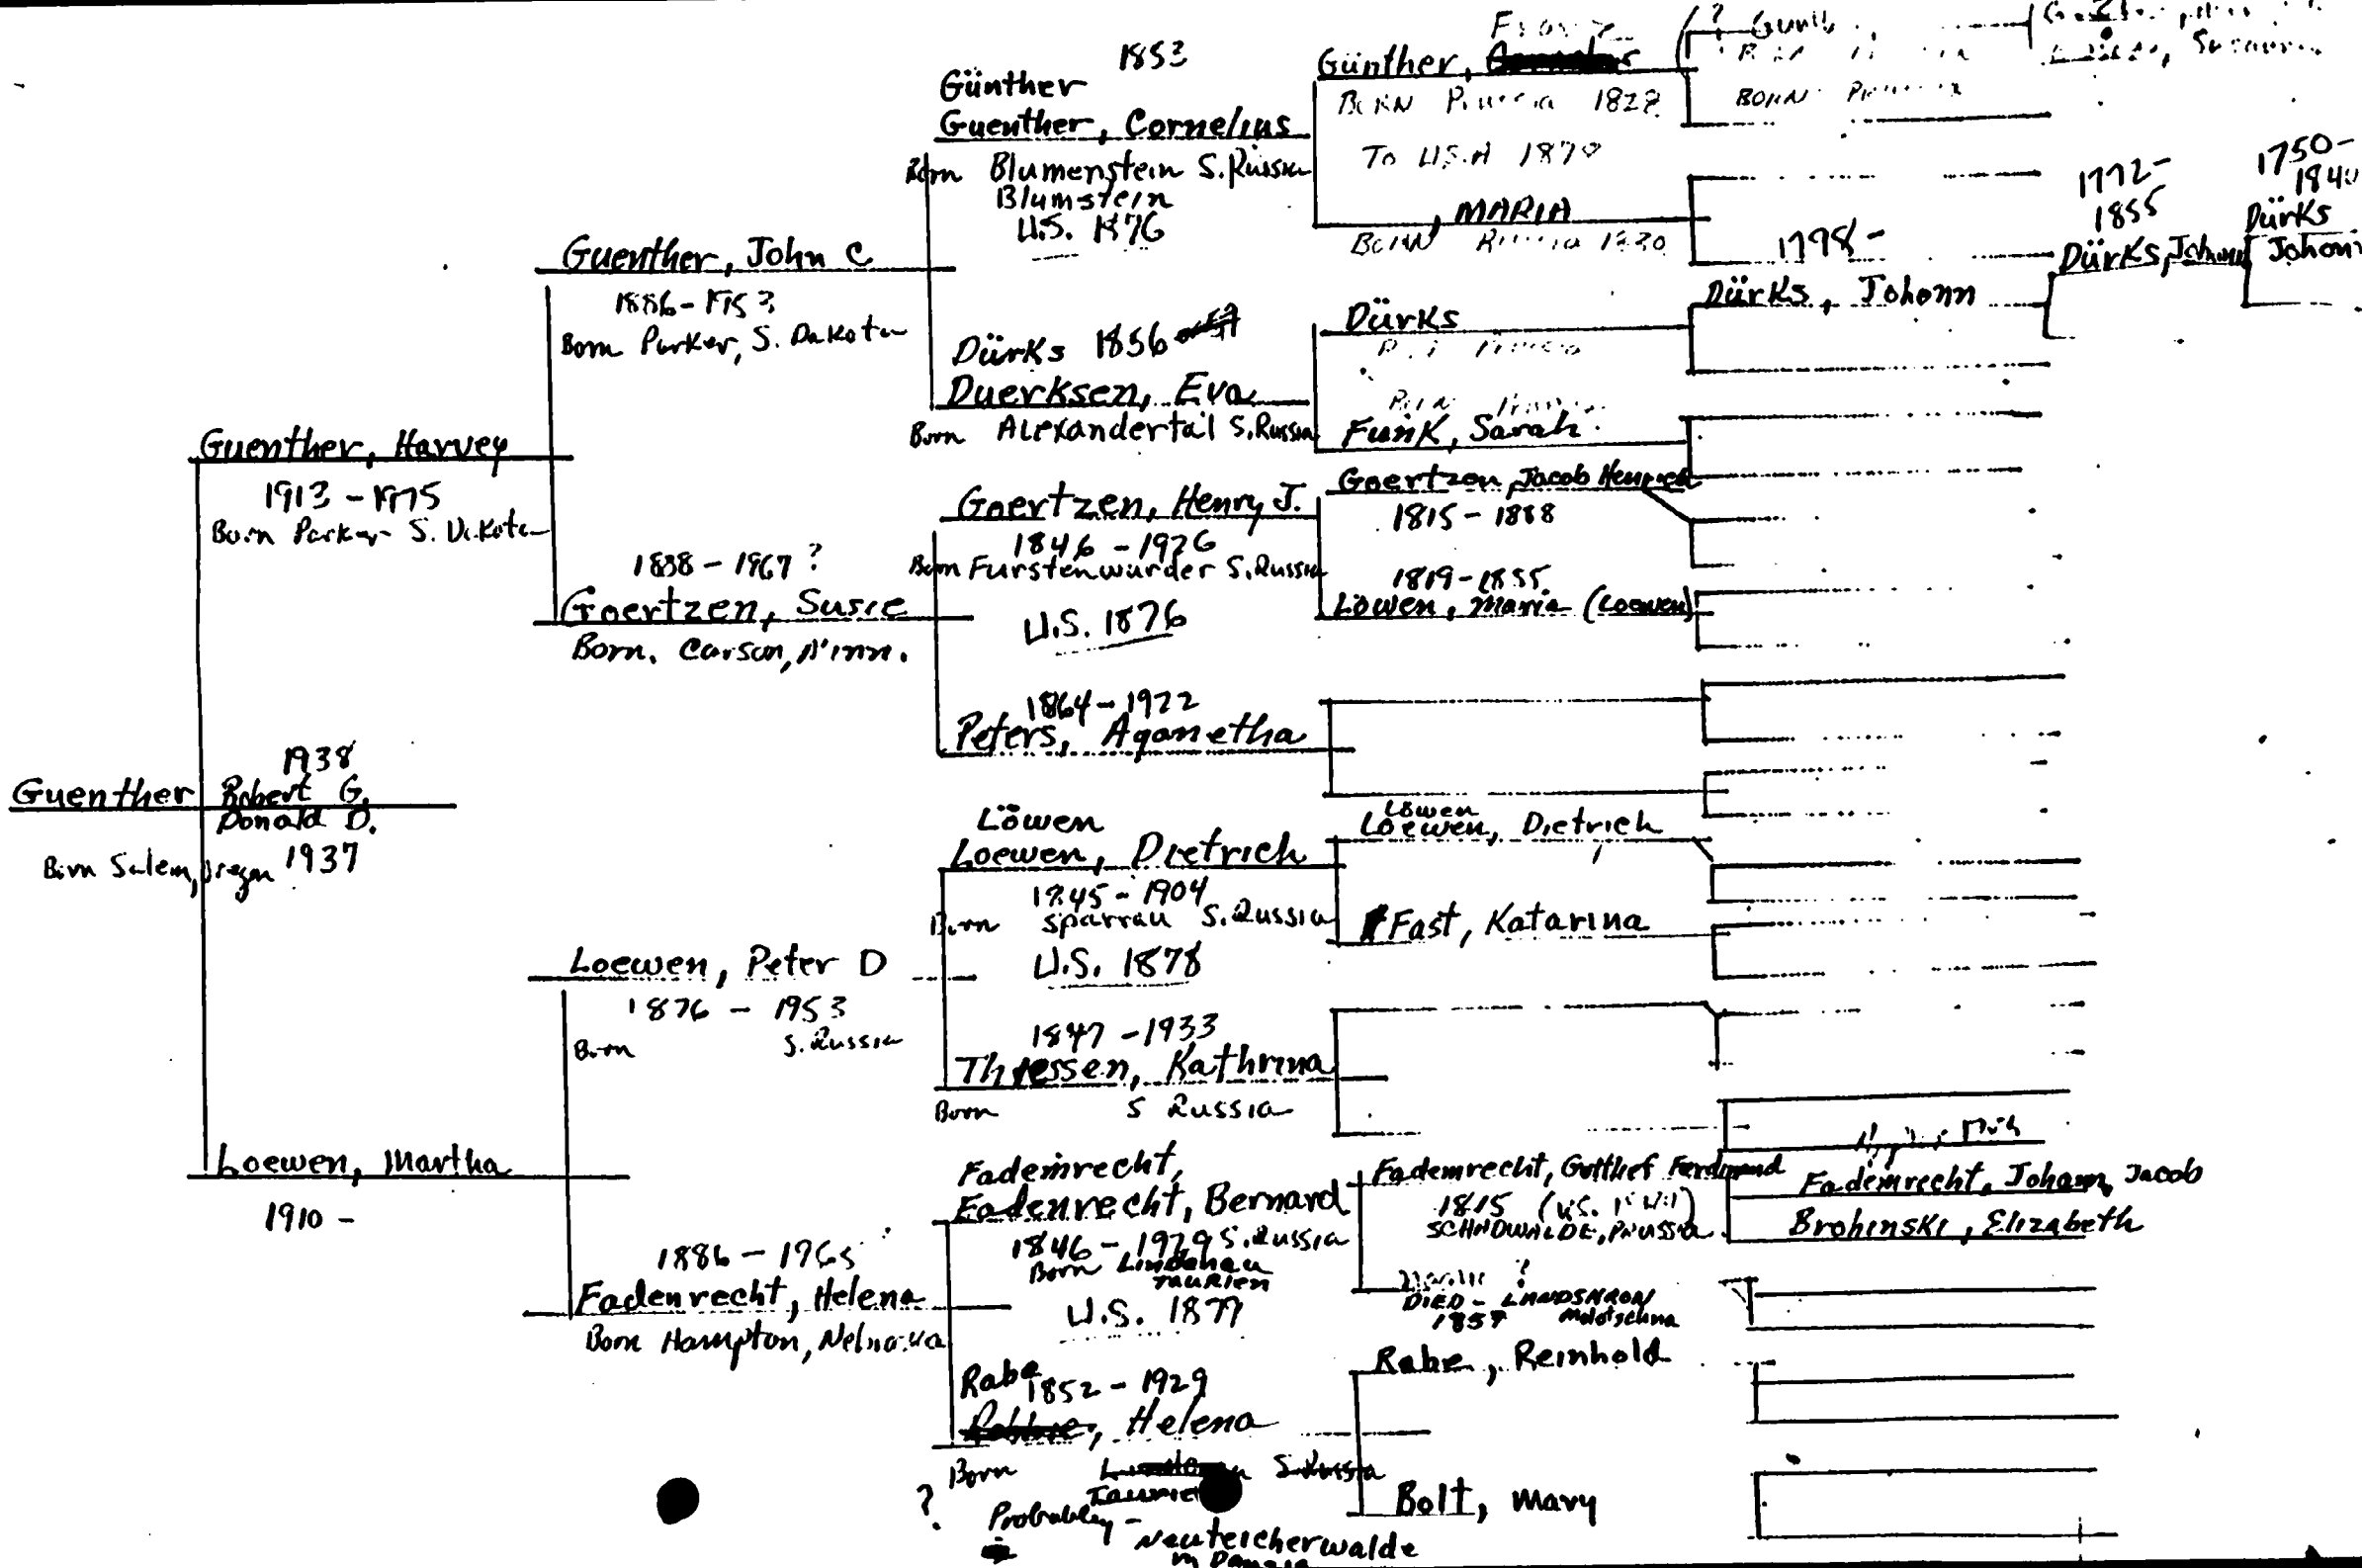 Guenther
1938
Robert G.
Donald D.
Born Salem, Oregon 1937
Guenther, Harvey
1913 - 1975
Born Parker S. Dakota
Loewen, Martha
1910 -
Guenther, John C
1886 - 1953
Born Parker, S. Dakota
1888 - 1967 ?
Goertzen, Susie
Born. Carson, Minn.
Loewen, Peter D
1876 - 1953
Born S. Russia
1886 - 1965
Fadenrecht, Helena
Born Hampton, Nebraska
1853
Günther
Guenther, Cornelius
Born Blumenstein S. Russia
Blumstein
U.S. 1876
Dürks 1856
Duerksen, Eva
Born Alexandertal S. Russia
Goertzen, Henry J.
1846 - 1926
Born Furstenwurder S. Russia
U.S. 1876
1864 - 1922
Peters, Aganetha
Löwen
Loewen, Dietrich
1845 - 1904
Born Sparrau S. Russia
U.S. 1878
1847 - 1933
Thiessen, Kathrina
Born S Russia
Fademrecht,
Fadenrecht, Bernard
1846 - 1929 S. Russia
Born Lindenau
Taurien
U.S. 1877
Rabe
1852 - 1929
, Helena
Born S. Russia
? Probabley -
Neuteicherwalde
in Danzig
Franz
Günther,
Born Prussia 1828
To U.S.A 187
, MARIA
BORN Russia 1830
Dürks
Funk, Sarah
Goertzen, Jacob Heinrich
1815 - 1888
1819 - 1855
Löwen, Maria (Loewen)
Löwen
Loewen, Dietrich
Fast, Katarina
Fademrecht, Gottlief Ferdinand
1815 (U.S.
SCHNOWALDE, PRUSSIA
?
DIED - LANDSKRON
1857 Molotschna
Rabe, Reinhold
Bolt, Mary
?
BORN Prussia
1798 -
Dürks, Johann
Fademrecht, Johann Jacob
Brohinski, Elizabeth
, Susanna
1772 -
1855
Dürks, Johann
1750 -
1840
Dürks
Johann